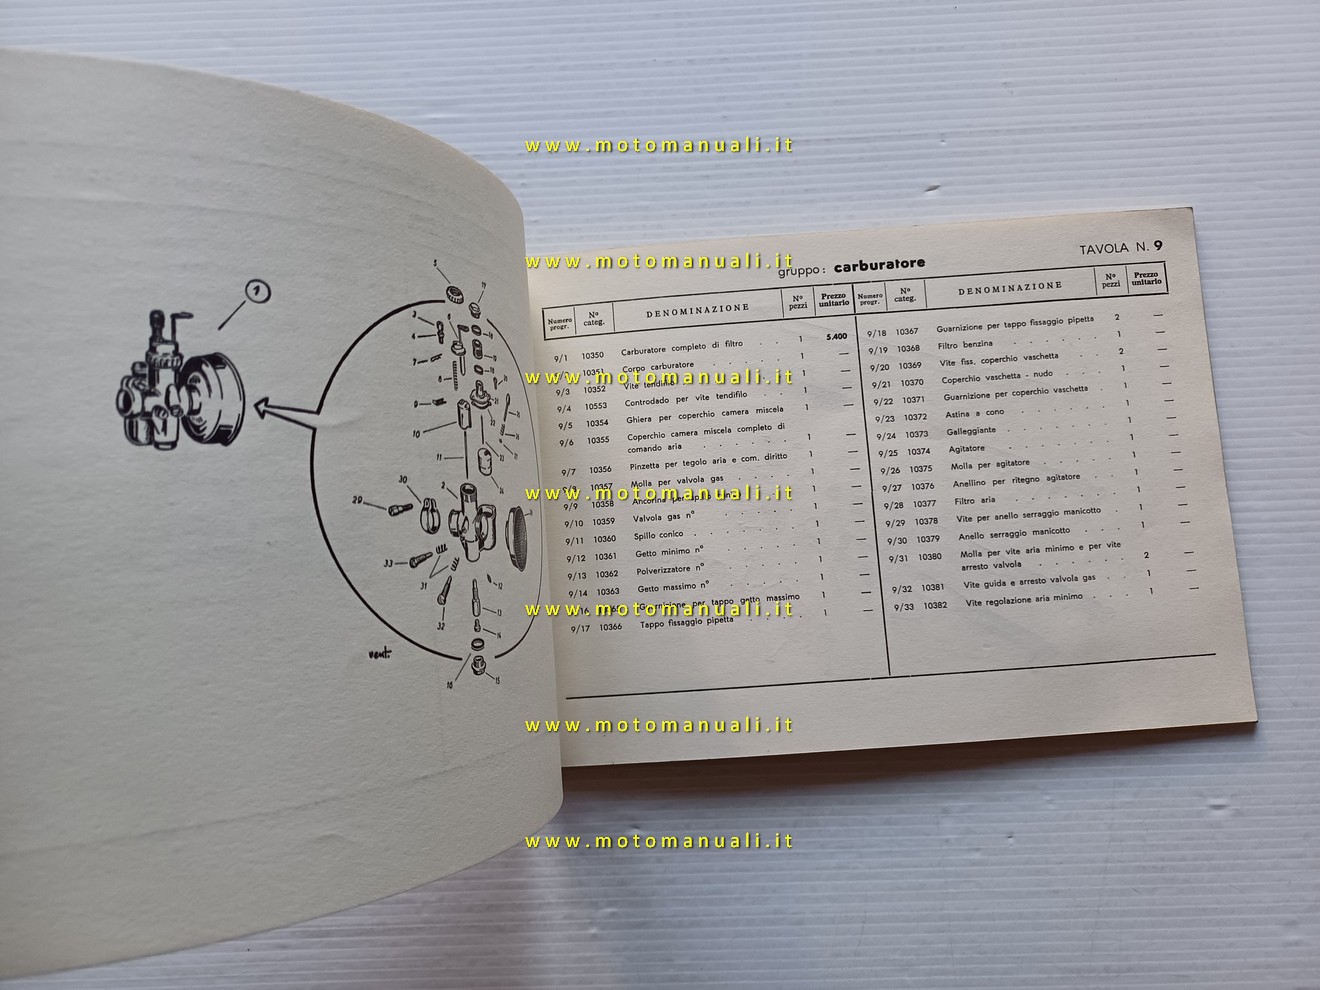 www.motomanuali.it
TAVOLA N. 9
www.motomanuali.it
gruppo: carburatore
Numero progr. Nº categ. DENOMINAZIONE Nº pezzi Prezzo unitario
9/1 10350 Carburatore completo di filtro 1 5.400
10351 Corpo carburatore 1 —
www.motomanuali.it
9/3 10352 Vite tendifilo
9/4 10553 Controdado per vite tendifilo
9/5 10354 Ghiera per coperchio camera miscela
9/6 10355 Coperchio camera miscela completo di
comando aria
9/7 10356 Pinzetta per tegolo aria e com. diritto
10357 Molla per valvola gas
www.motomanuali.it
9/9 10358
9/10 10359 Valvola gas nº
9/11 10360 Spillo conico
9/12 10361 Getto minimo nº
9/13 10362 Polverizzatore nº
9/14 10363 Getto massimo nº
www.motomanuali.it
per tappo getto massimo
9/17 10366 Tappo fissaggio pipetta
Numero progr. Nº categ. DENOMINAZIONE Nº pezzi Prezzo unitario
9/18 10367 Guarnizione per tappo fissaggio pipetta 2 —
9/19 10368 Filtro benzina 1 —
9/20 10369 Vite fiss. coperchio vaschetta 2 —
9/21 10370 Coperchio vaschetta - nudo 1 —
9/22 10371 Guarnizione per coperchio vaschetta 1 —
9/23 10372 Astina a cono 1 —
9/24 10373 Galleggiante 1 —
9/25 10374 Agitatore 1 —
9/26 10375 Molla per agitatore 1 —
9/27 10376 Anellino per ritegno agitatore 1 —
9/28 10377 Filtro aria 1 —
9/29 10378 Vite per anello serraggio manicotto 1 —
9/30 10379 Anello serraggio manicotto 1 —
9/31 10380 Molla per vite aria minimo e per vite
arresto valvola 2 —
9/32 10381 Vite guida e arresto valvola gas 1 —
9/33 10382 Vite regolazione aria minimo 1 —
www.motomanuali.it
www.motomanuali.it
1
5
10
11
2
30
29
33
31
32
12
13
14
16
15